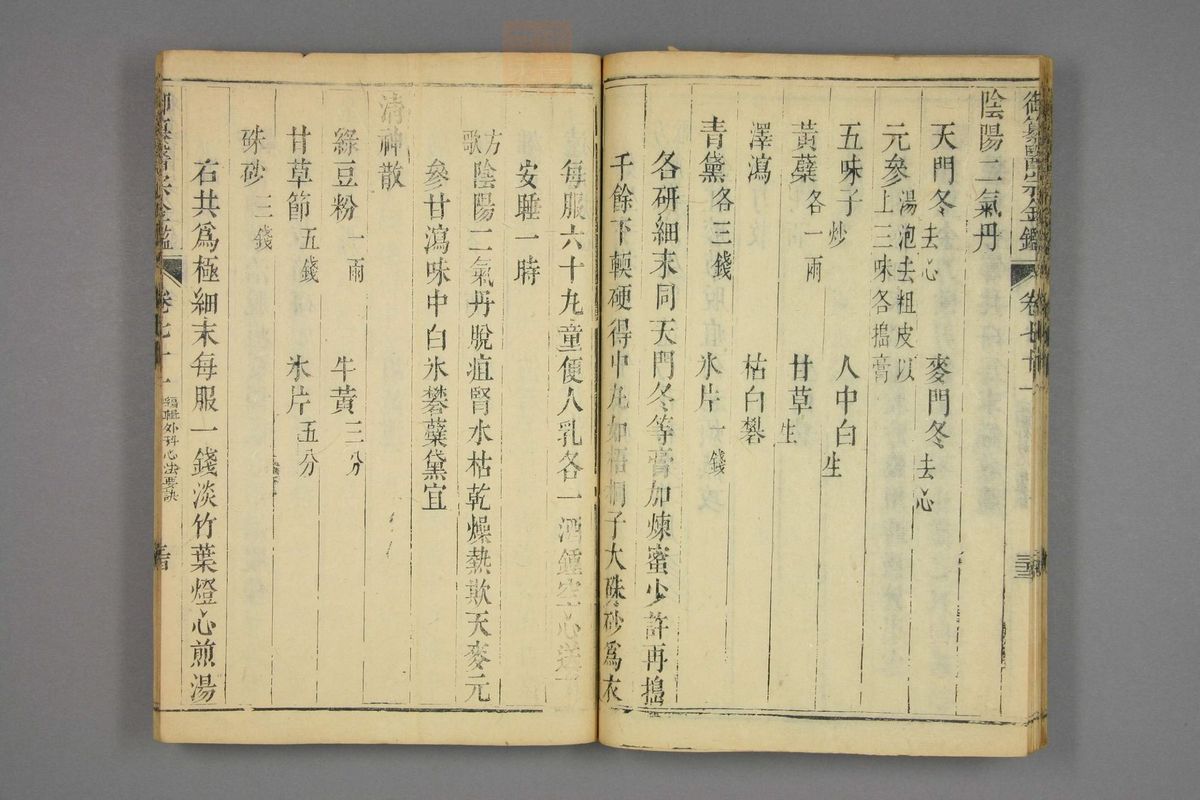 御纂醫宗金鑑 卷七十一 三
陰陽二氣丹
天門冬去心 麥門冬去心
元參湯泡去粗皮以上三味各搗膏
五味子炒 人中白生
黃蘗各一兩 甘草生
澤瀉 枯白礬
青黛各三錢 氷片一錢
各研細末同天門冬等膏加煉蜜少許再搗
千餘下輭硬得中丸如梧桐子大硃砂爲衣
每服六十丸童便人乳各一酒鍾空心送下
安睡一時
方歌 陰陽二氣丹脫疽腎水枯乾燥熱欺天麥元
參甘瀉味中白氷礬蘗黛宜
清神散
綠豆粉一兩 牛黃三分
甘草節五錢 氷片五分
硃砂三錢
右共爲極細末每服一錢淡竹葉燈心煎湯
御纂醫宗金鑑 卷七十一 編輯外科心法要訣